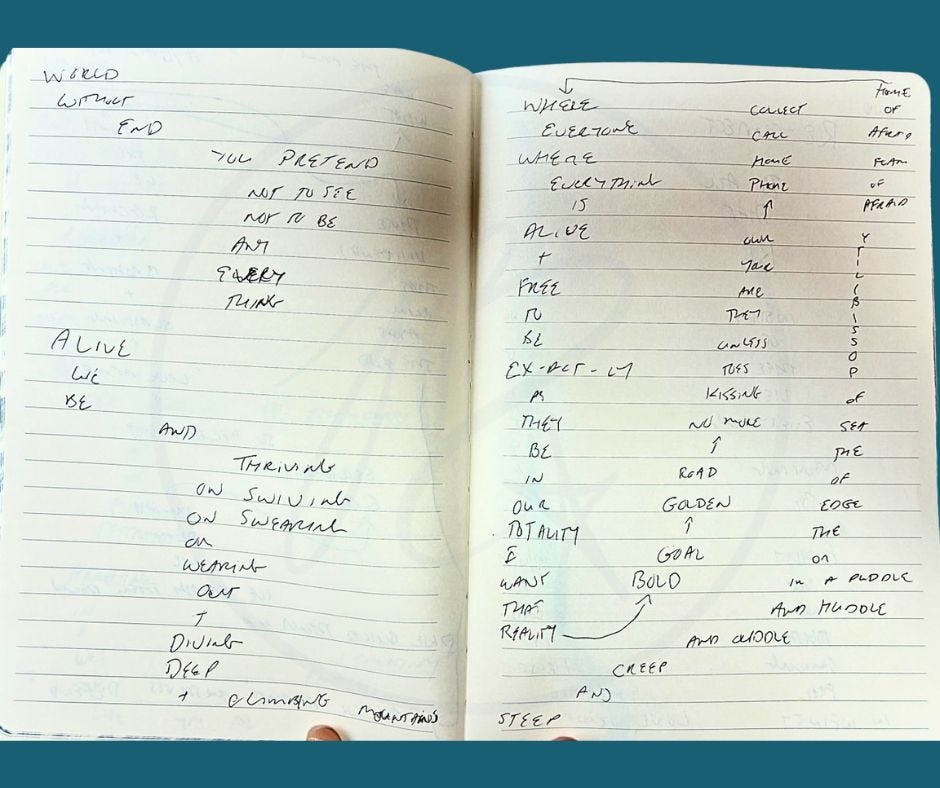 WORLD
WITHOUT
END
YOU PRETEND
NOT TO SEE
NOT TO BE
ANY
EVERY
THING
ALIVE
WE
BE
AND
THRIVING
ON SWIVING
ON SWEARING
OR
WEARING
OUT
+
DIVING
DEEP
+ CLIMBING MOUNTAINS
STEEP
AND
CREEP
AND CUDDLE
AND HUDDLE
IN A PUDDLE
ON
THE
EDGE
OF
THE
SEA
OF
POSSIBILITY
AFRAID
OF
FEAR
AFRAID
OF
HOME
WHERE
EVERYONE
WHERE
EVERYTHING
IS
ALIVE
+
FREE
TO
BE
EX-ACT-LY
AS
THEY
BE
IN
OUR
TOTALITY
I
WANT
THAT
REALITY
BOLD
GOAL
↑
GOLDEN
ROAD
↑
NO MORE
KISSING
TOES
UNLESS
THEY
ARE
YOUR
OWN
↑
PHONE
HOME
CALL
COLLECT